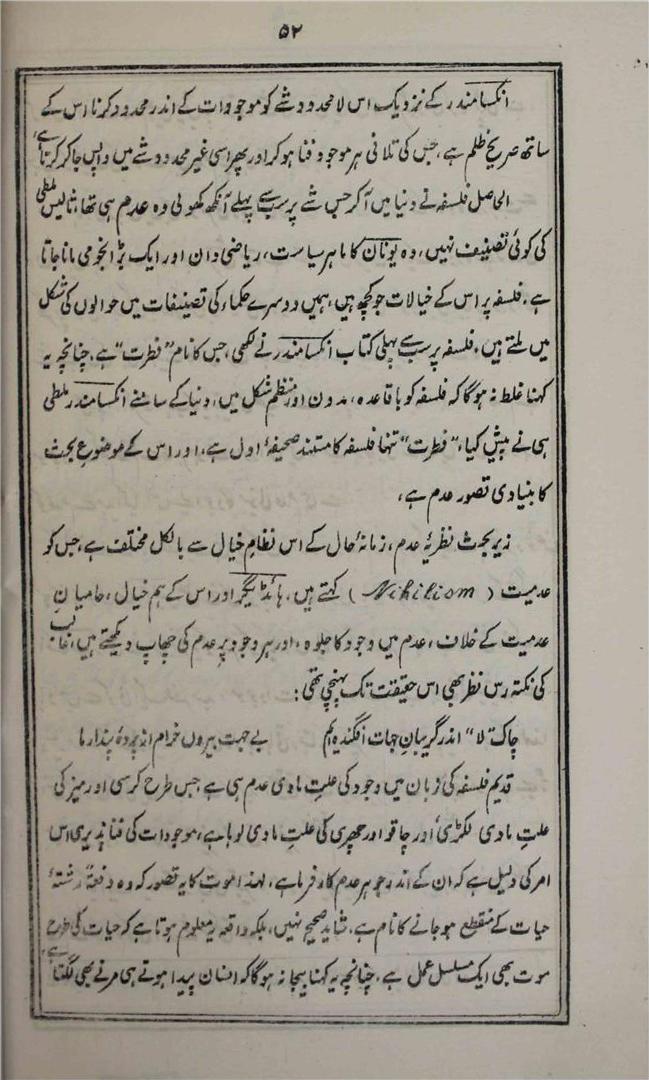 ۵۲
انکسامندر کے نزدیک اس لامحدود شے کو موجودات کے اندر محدود کرنا اس کے
ساتھ صریح ظلم ہے، جس کی تلافی ہر موجود فنا ہو کر اور پھر اسی غیر محدود شے میں واپس جا کر کرتا ہے،
الحاصل فلسفہ نے دنیا میں آ کر جس شے پر سب سے پہلے آنکھ کھولی وہ عدم ہی تھا، ثالیس ملطی
کی کوئی تصنیف نہیں، وہ یونان کا ماہر سیاست، ریاضی دان اور ایک بڑا نجومی مانا جاتا
ہے، فلسفہ پر اس کے خیالات جو کچھ ہیں، ہمیں دوسرے حکماء کی تصنیفات میں حوالوں کی شکل
میں ملتے ہیں، فلسفہ پر سب سے پہلی کتاب انکسامندر نے لکھی، جس کا نام "فطرت" ہے، چنانچہ یہ
کہنا غلط نہ ہوگا کہ فلسفہ کو باقاعدہ، مدون اور منظم شکل میں، دنیا کے سامنے انکسامندر ملطی
ہی نے پیش کیا، "فطرت" تنہا فلسفہ کا مستند صحیفۂ اول ہے، اور اس کے موضوعِ بحث
کا بنیادی تصور عدم ہے،
زیر بحث نظریۂ عدم، زمانۂ حال کے اس نظامِ خیال سے بالکل مختلف ہے، جس کو
عدمیت (Nihilism) کہتے ہیں، ہائڈیگر اور اس کے ہم خیال، حامیانِ
عدمیت کے خلاف، عدم میں وجود کا جلوہ، اور ہر وجود پر عدم کی چھاپ دیکھتے ہیں، غالب
کی نکتہ رس نظر بھی اس حقیقت تک پہنچی تھی:
چاک لا" اندر گریبانِ جہات افگندہ ایم بے جہت بیروں خرام از پردۂ پندار ما
قدیم فلسفہ کی زبان میں وجود کی علتِ مادی عدم ہی ہے، جس طرح کرسی اور میز کی
علتِ مادی لکڑی، اور چاقو اور چھری کی علتِ مادی لوہا ہے، موجودات کی فنا پذیری اس
امر کی دلیل ہے کہ ان کے اندر جوہر عدم کارفرما ہے، لہذا موت کا یہ تصور کہ وہ دفعۃً رشتۂ
حیات کے منقطع ہو جانے کا نام ہے، شاید صحیح نہیں، بلکہ واقعہ یہ معلوم ہوتا ہے کہ حیات کی طرح
موت بھی ایک مسلسل عمل ہے، چنانچہ یہ کہنا بیجا نہ ہوگا کہ انسان پیدا ہوتے ہی مرنے بھی لگتا ہے،